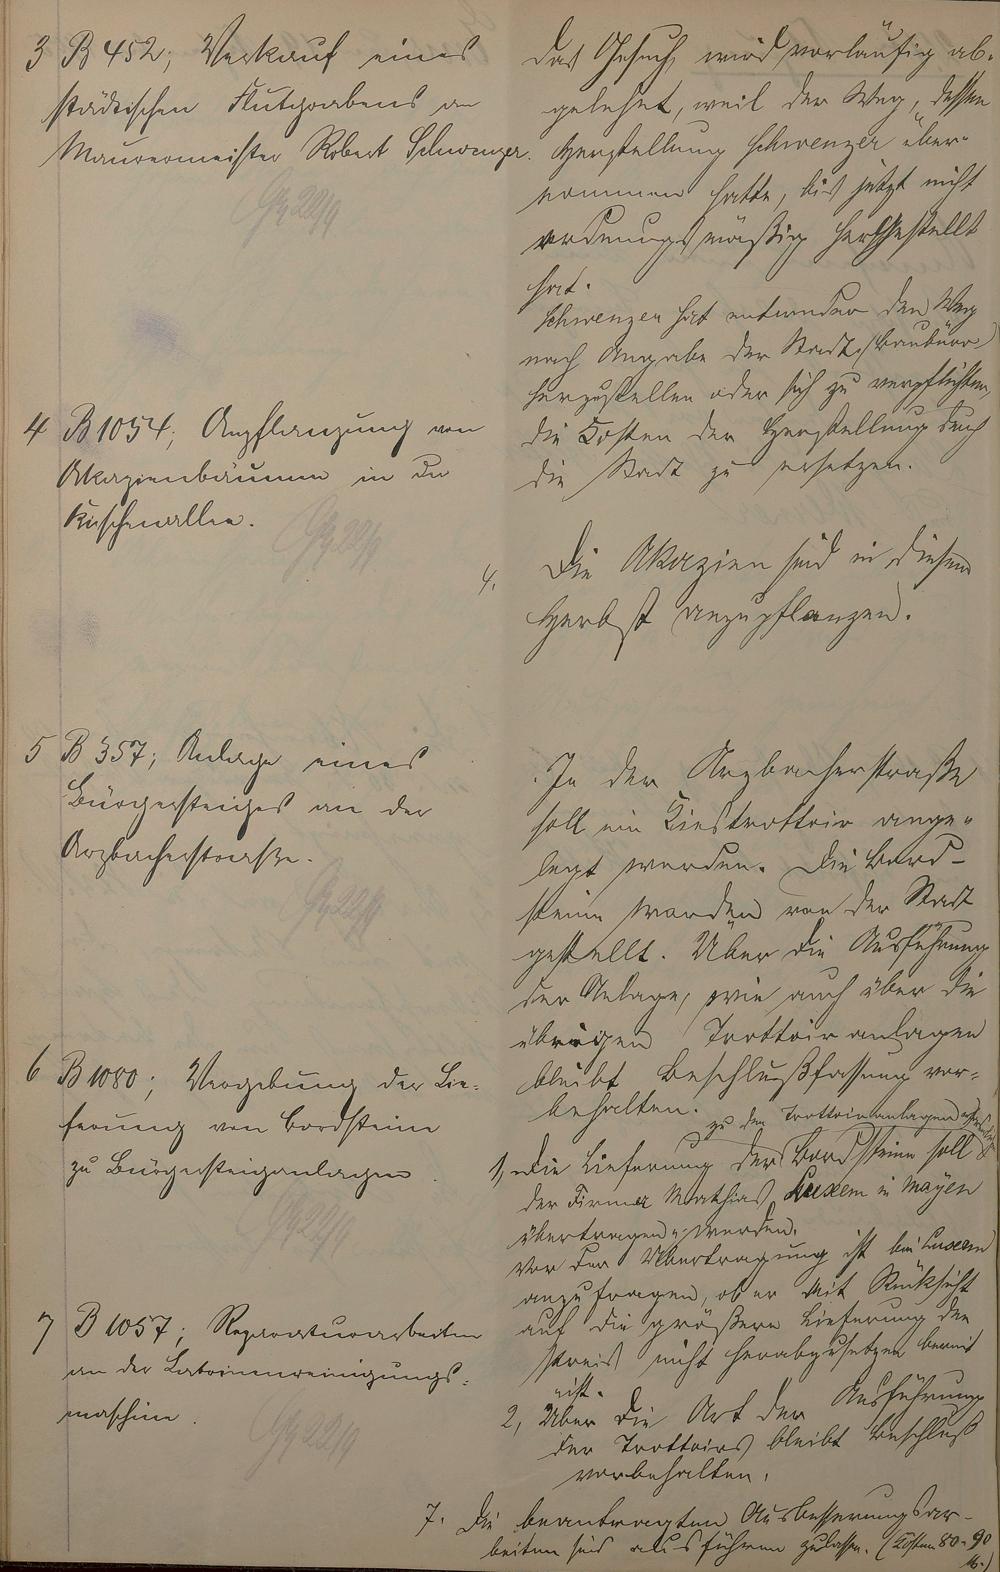 3 B 452; Verkauf eines
städtischen Flutgrabens an
Maurermeister Robert Schwenzer.
Das Gesuch wird vorläufig ab-
gelehnt, weil der Weg, dessen
Herstellung Schwenzer über-
nommen hatte, bis jetzt nicht
ordnungsmäßig hergestellt
hat.
Schwenzer hat entweder den Weg
nach Angabe der Stadt (Baubüro)
herzustellen oder sich zu verpflichten,
die Kosten der Herstellung durch
die Stadt zu ersetzen.
4 B 1054; Anpflanzung von
Akazienbäumen in der
Kirschenallee.
4. Die Akazien sind in diesem
Herbst anzupflanzen.
5 B 357; Anlage eines
Bürgersteiges an der
Arzbacherstraße.
In der Arzbacherstraße
soll ein Kiestrottoir ange-
legt werden. Die Bord-
steine werden von der Stadt
gestellt. Über die Ausführung
der Anlage, wie auch über die
übrigen Trottoiranlagen
bleibt Beschlußfassung vor-
behalten.
6 B 1080; Vergebung der Lie-
ferung von Bordsteine
zu Bürgersteiganlagen.
zu den Trottoiranlagen
1, Die Lieferung der Bordsteine soll
der Firma Mathias Luxem in Mayen
übertragen werden.
Vor der Übertragung ist bei Luxem
anzufragen, ob er mit Rücksicht
auf die größere Lieferung den
Preis nicht herabzusetzen bereit
ist.
2, Über die Art der Ausführung
der Trottoirs bleibt Beschluß
vorbehalten.
7 B 1057; Reparaturarbeiten
an der Latrinenreinigungs-
maschine.
7. Die beantragten Ausbesserungsar-
beiten sind ausführen zulassen. (Kosten 80-90
M.)